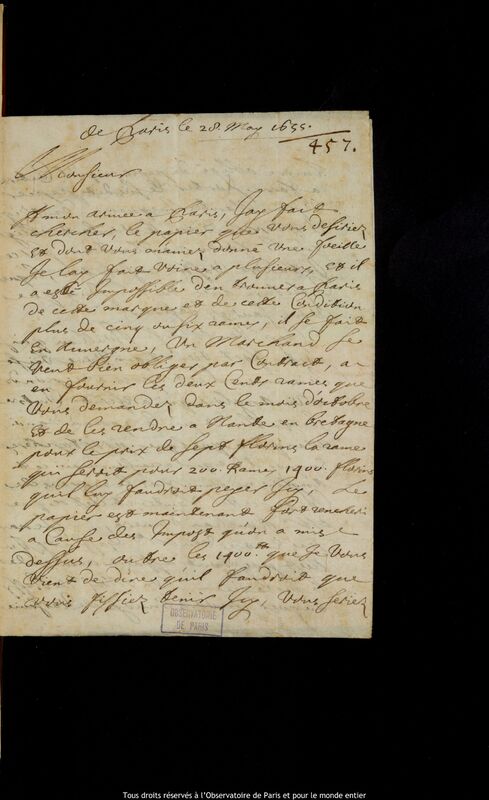 de Paris le 28. May 1655.
457.
Monsieur
A mon arivee a Paris, Jay fait
chercher, le papier que vous desiriez
Et dont vous m'aviez donné une foeille
Je lay fait voire a plusieurs, et il
a esté Impossible d'en trouver a Paris
de cette marque et de cette Condition
plus de cinq ou six rames, il se fait
En Auvergne, Un Marchand se
veut bien obliger par Contract, a
en fournir les deux Cents rames que
vous demandez dans le mois d'octobre
Et de les rendre a Nante en bretagne
pour le prix de sept florins la rame
qui seroit pour 200. Rames 1400. florins
quil luy faudroit peyer Icy, Le
papier est maintenant fort rencheri
a Cause des Impost qu'on a mis
dessus, outre les 1400.tt que Je vous
vient de dire quil faudroit que
vous fissiez tenir Icy, vous seriez
OBSERVATOIRE
DE PARIS
Tous droits réservés à l'Observatoire de Paris et pour le monde entier